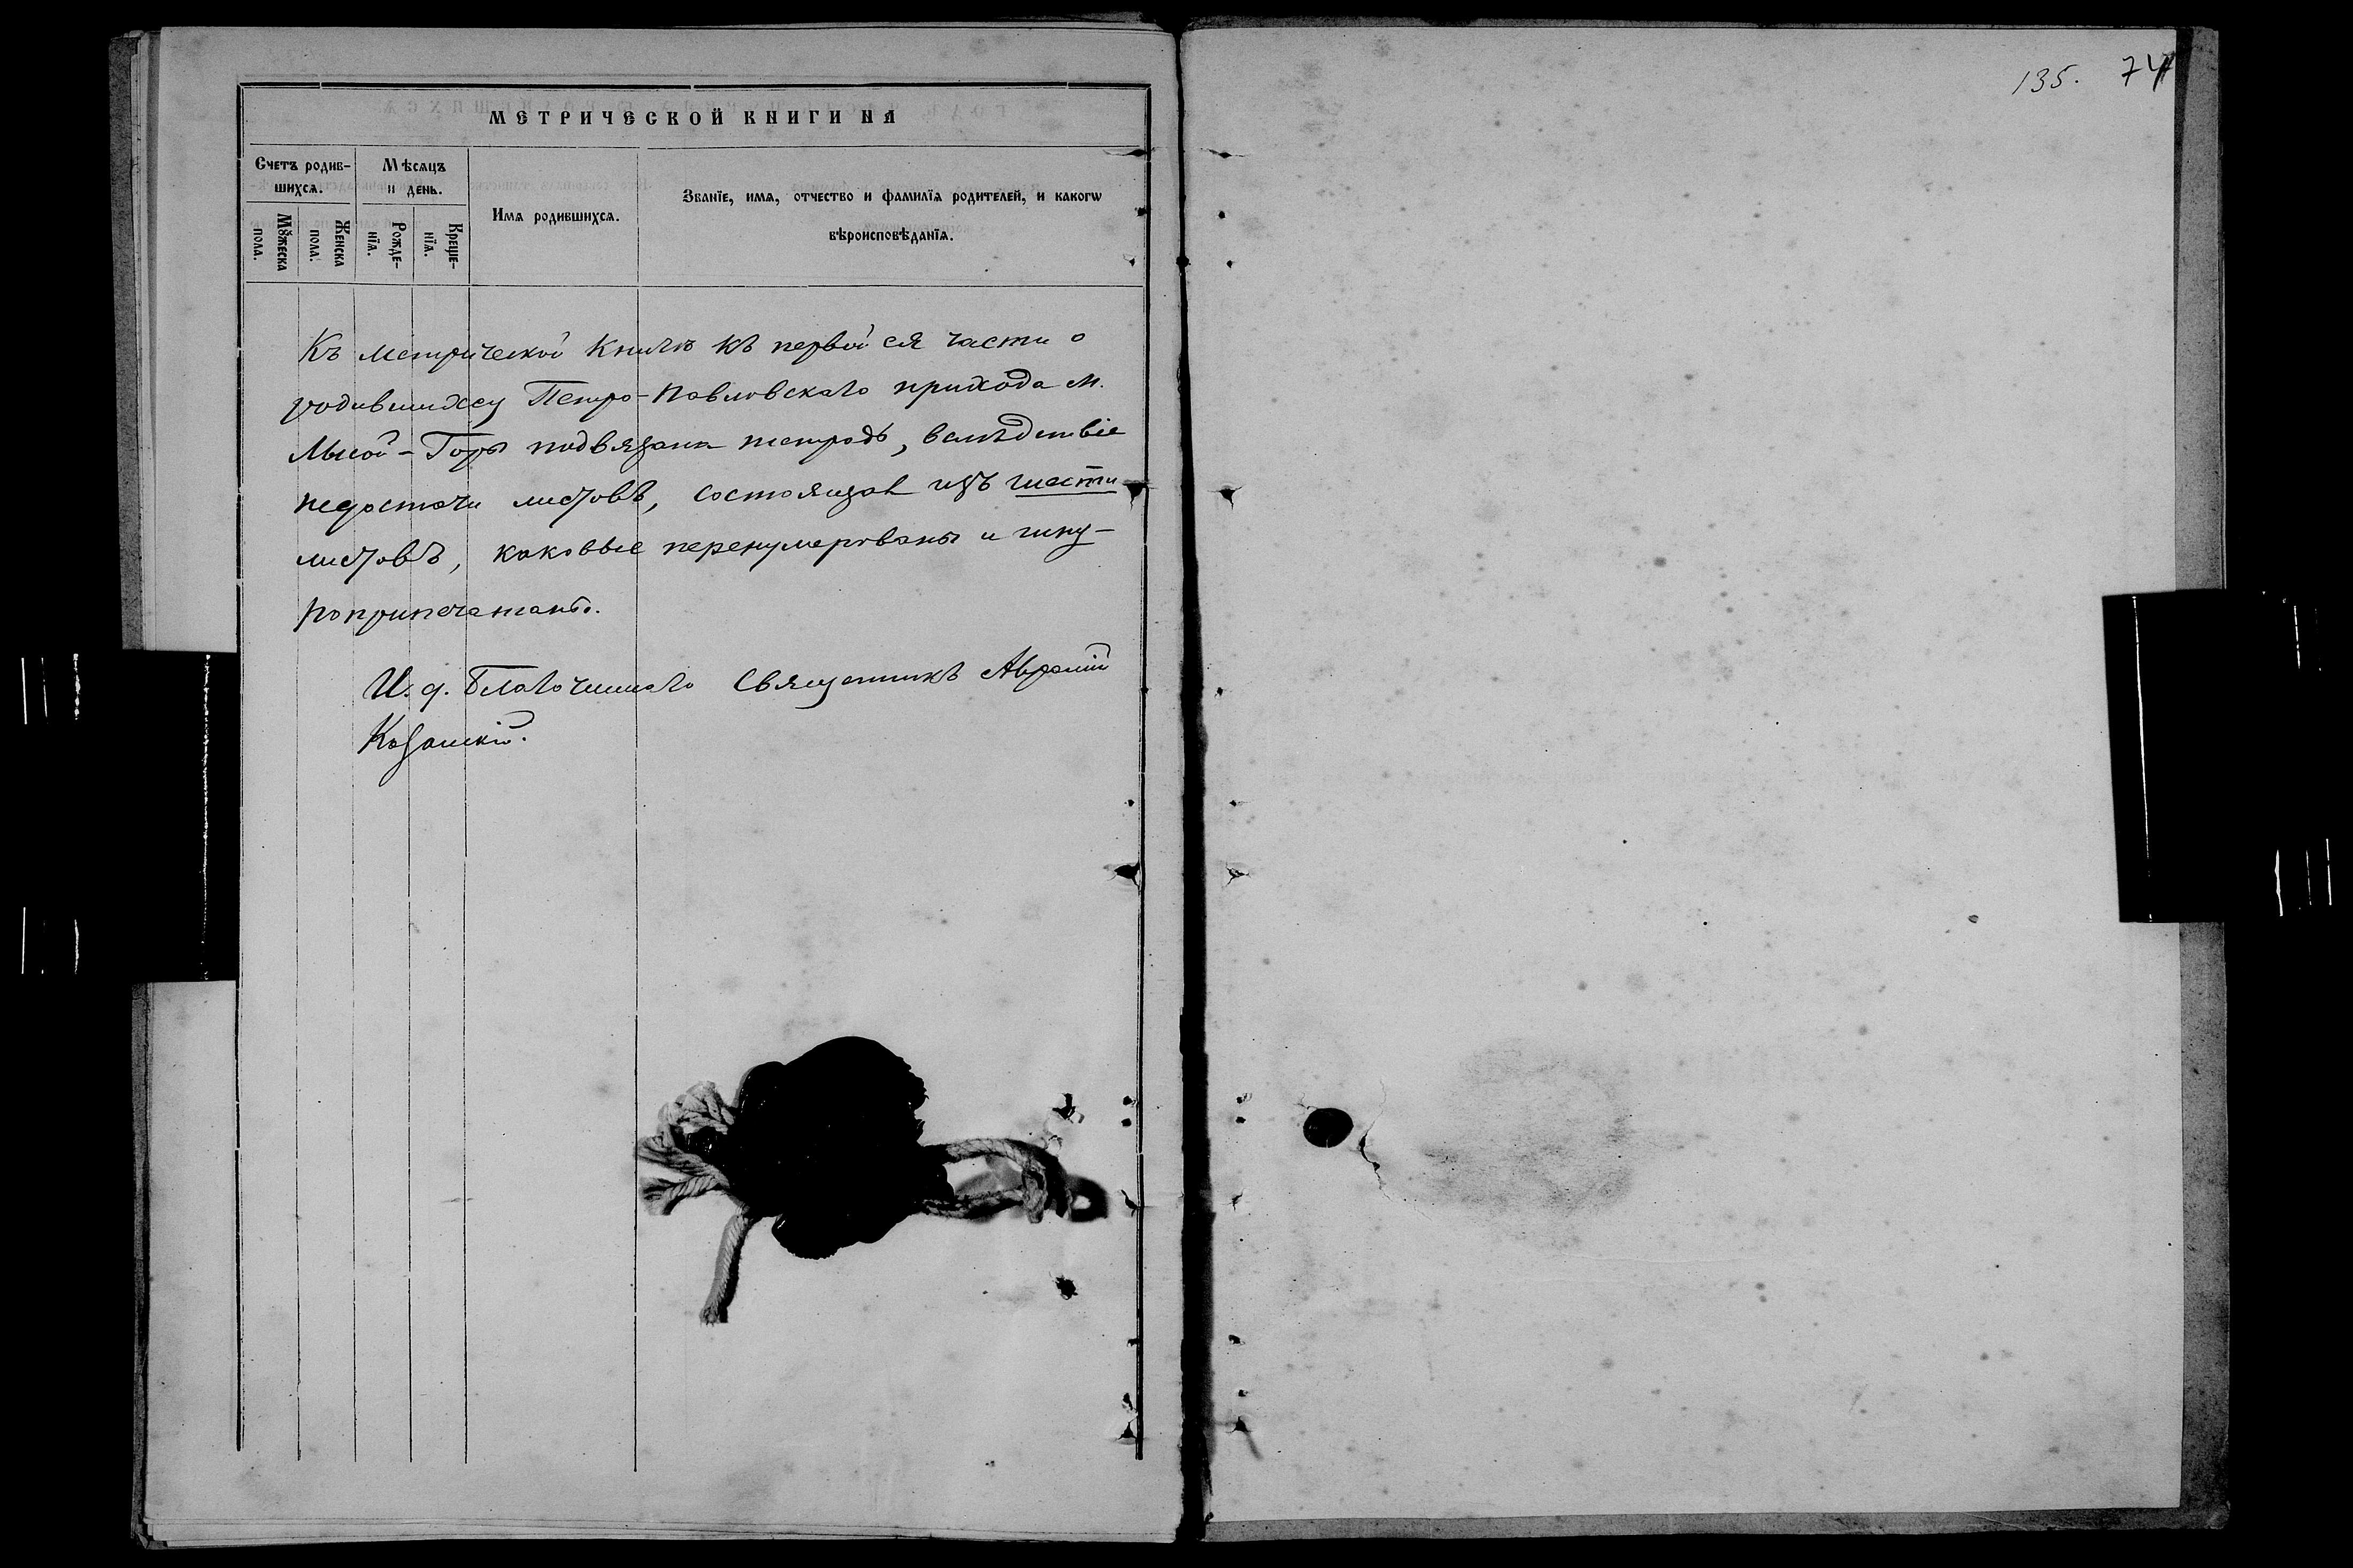 135. 74
МЕТРИЧЕСКОЙ КНИГИ НА
Счетъ родив-
шихсѧ.
Мѣсѧцъ
и день.
Имѧ родившихсѧ.
Званїе, имѧ, отчество и фамилїѧ родителей, и какогѡ
вѣроисповѣданїѧ.
Мꙋжеска
пола.
Женска
пола.
Рожде-
нїѧ.
Креще-
нїѧ.
Къ метрической книгѣ къ первой ея части о
родившихся Петро-Павловскаго прихода м.
Лысой-Горы подвязана тетрадь, вслѣдствіе
недостачи листовъ, состоящая изъ шести
листовъ, каковые перенумерованы и шну-
роприпечатаны.
И. д. Благочиннаго Священникъ
Казанскій.